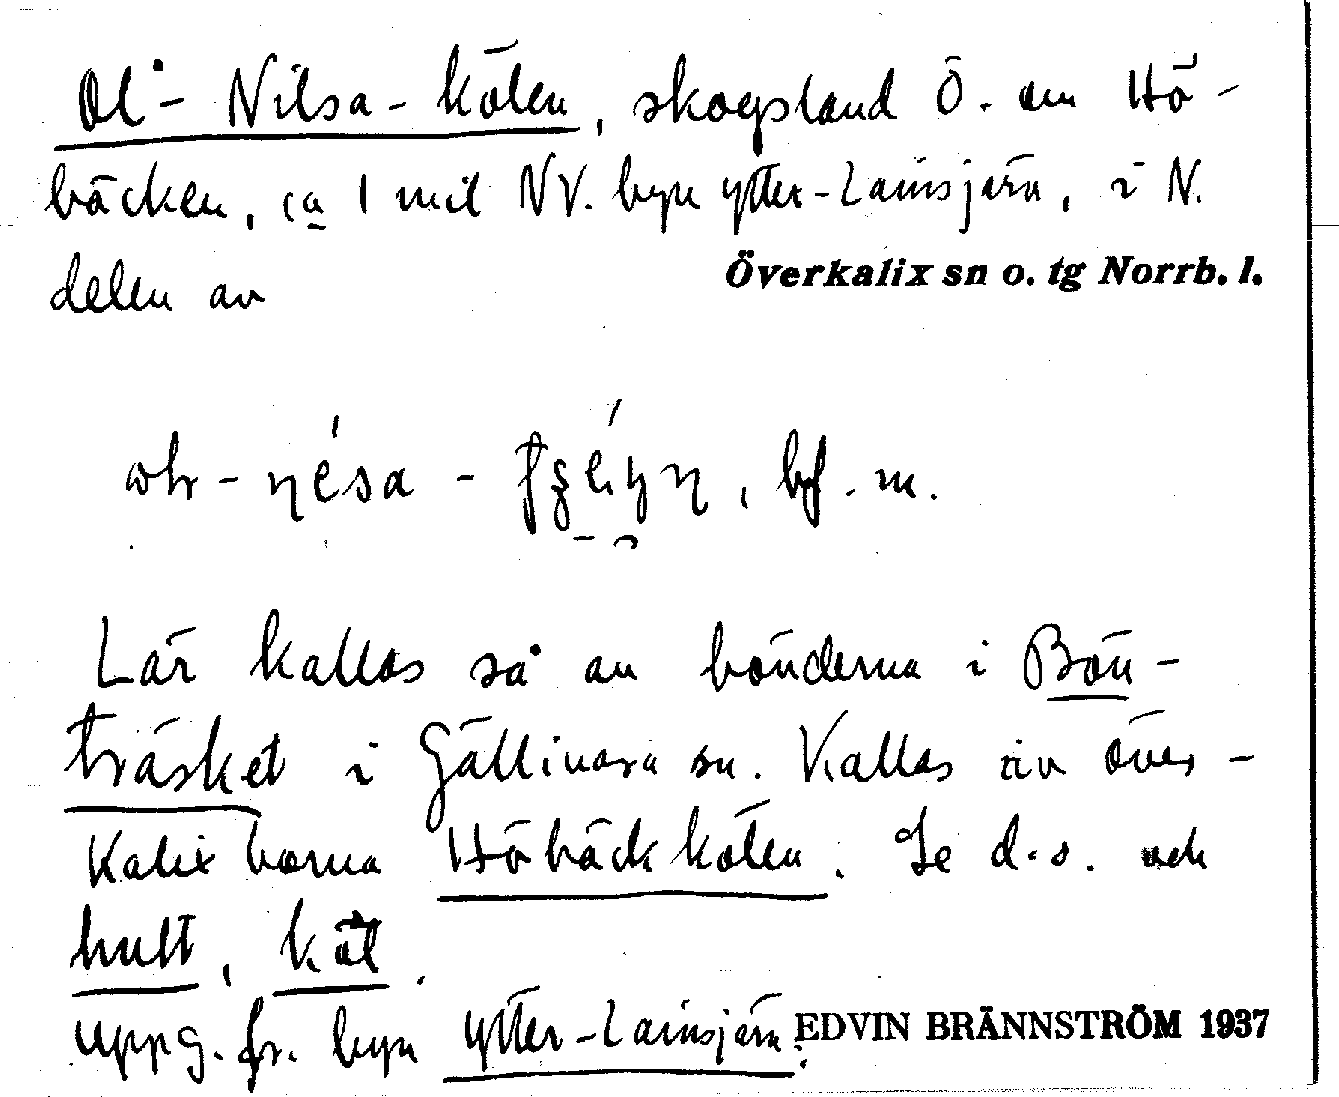 Ol-Nilsa-kölen, skogsland Ö. om Hö-
bäcken, ca 1 mil NV. byn Ytter-Lainsjärv, i N.
delen av
Överkalix sn o. tg Norrb. l.
bf. m.
Lär kallas så av bönderna i Bön-
träsket i Gällivara sn. Kallas av över-
Kalixborna Höbäckkölen. Se d.o. och
hult, köl.
Uppg. fr. byn Ytter-Lainsjärv.
EDVIN BRÄNNSTRÖM 1937